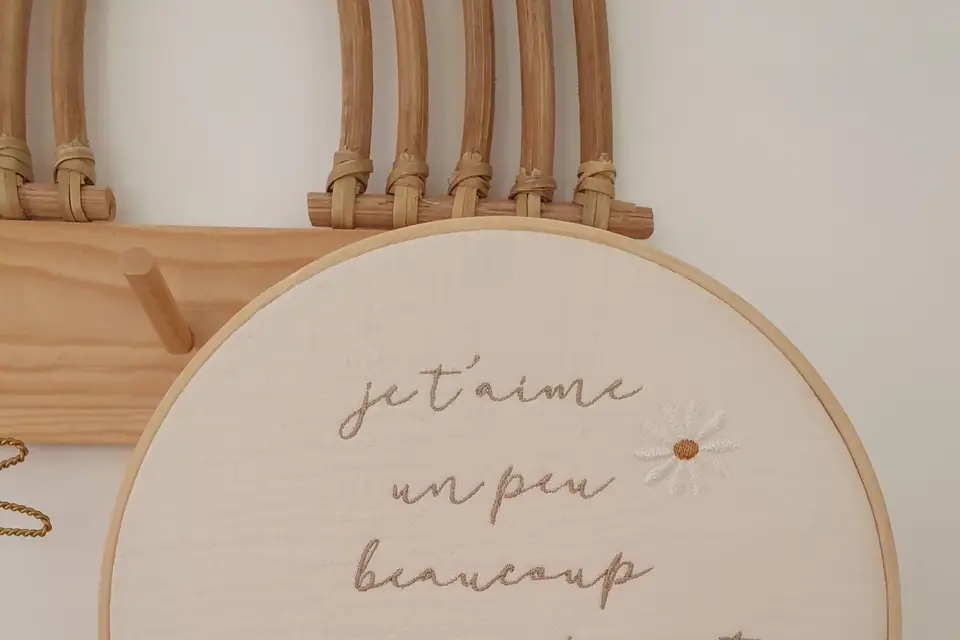 je t'aime
un peu
beaucoup